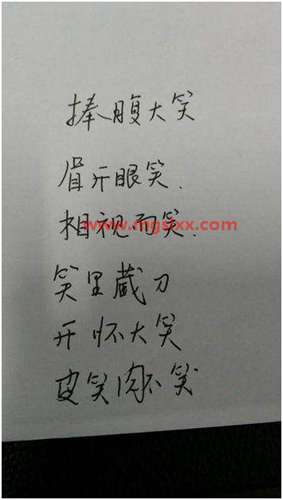 捧腹大笑
眉开眼笑.
相视而笑.
www.mgslxx.com
笑里藏刀
开怀大笑
皮笑肉不笑